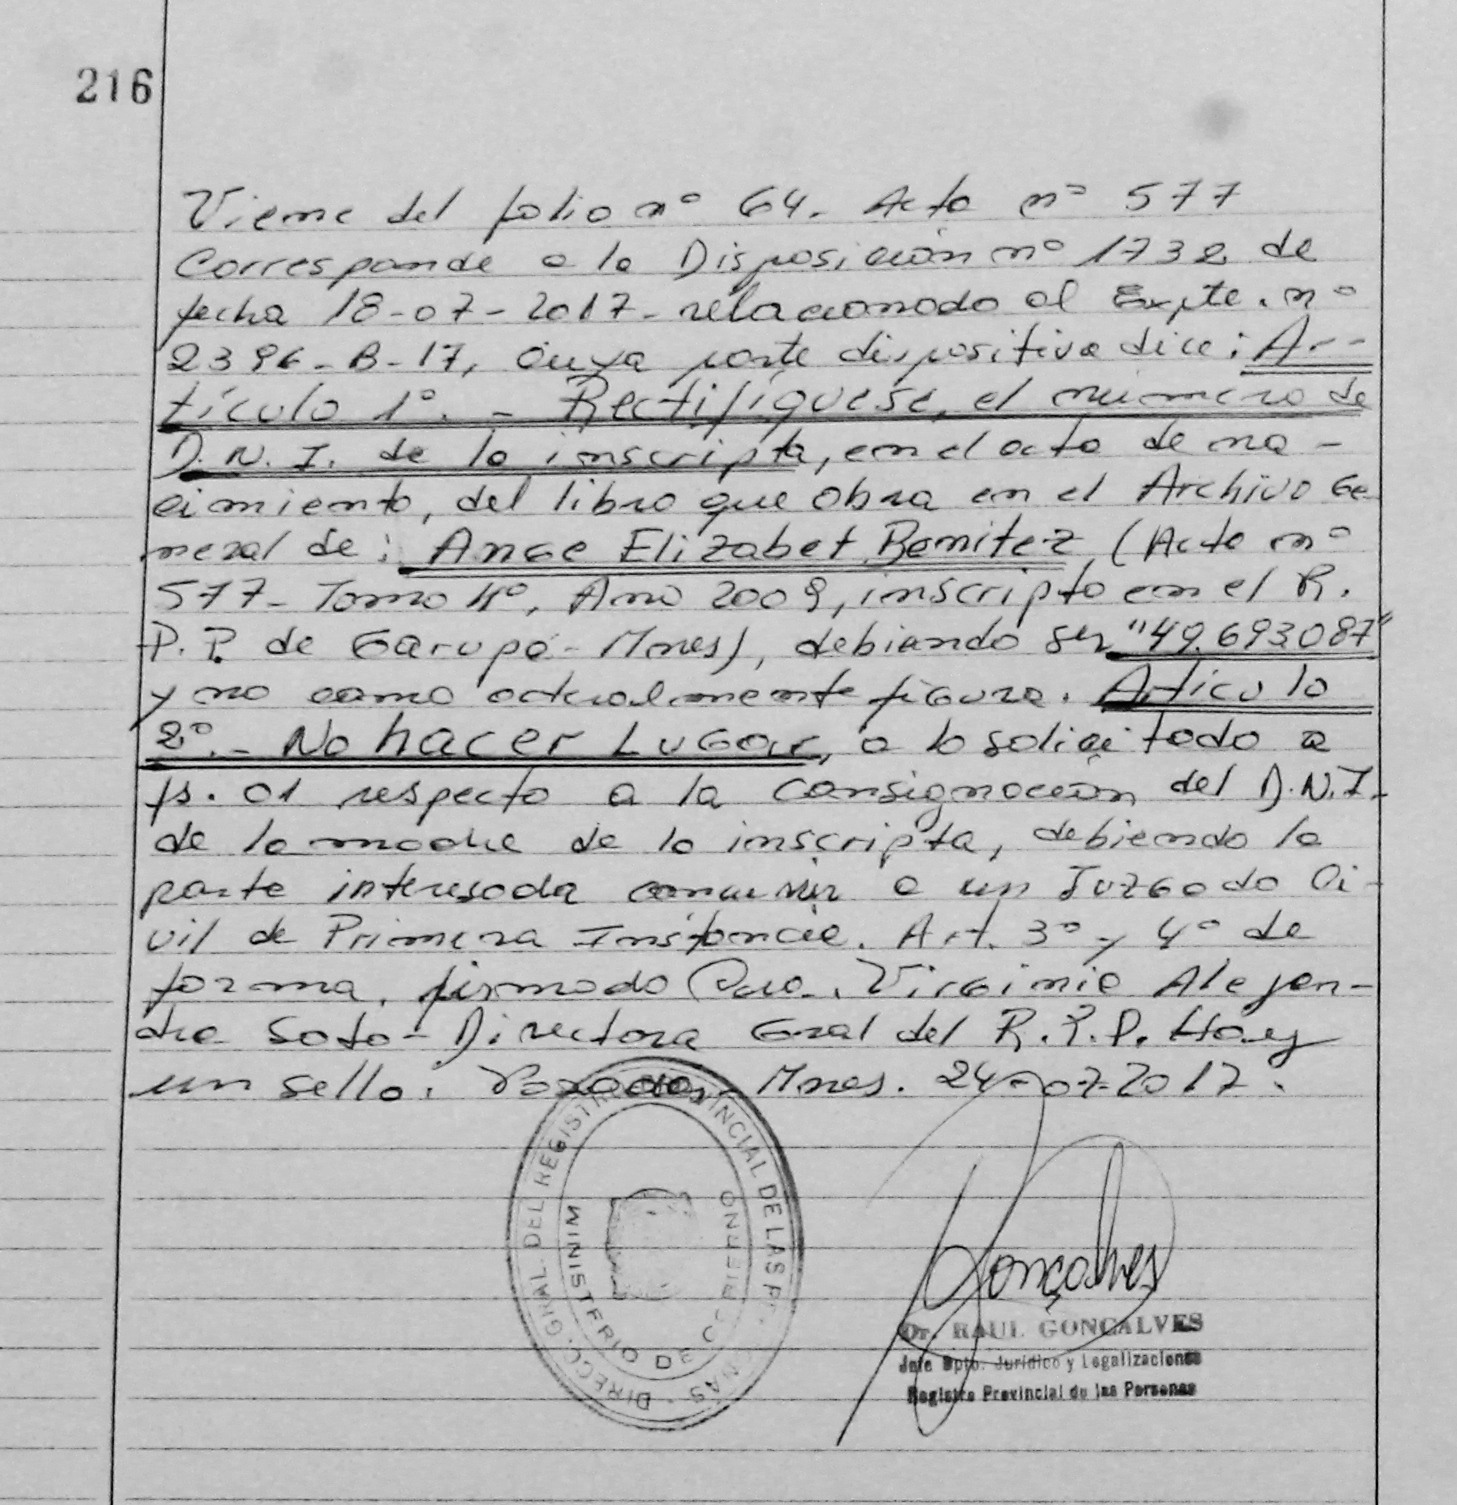 216
Viene del folio nº 64. Acta nº 577
Corresponde a la Disposición nº 1732 de
fecha 18-07-2017- relacionado al Expte. nº
2396-B-17, cuya parte dispositiva dice: Ar-
tículo 1º. - Rectifíquese, el número de
D.N.I. de la inscripta, en el acta de na-
cimiento, del libro que obra en el Archivo Ge
neral de: Ange Elizabet Benitez (Acta nº
577- Tomo 4º, Año 2009, inscripta en el R.
P.P. de Garupá-Mnes), debiendo ser "49.693.087"
y no como actualmente figura. Artículo
2º.- No hacer Lugar, a lo solicitado a
fs. 01 respecto a la consignación del D.N.I.
de la madre de la inscripta, debiendo la
parte interesada concurrir a un Juzgado Ci-
vil de Primera Instancia. Art. 3º y 4º de
forma. firmado Virginia Alejan-
dra Soto- Directora Gral del R.P.P. Hay
un sello. Posadas, Mnes. 24-07-2017.
DIRECC. GRAL. DEL REGISTRO PROVINCIAL DE LAS
MINISTERIO DE GOBIERNO
Gonçalves
Dr. RAUL GONCALVES
Jefe Dpto. Jurídico y Legalizaciones
Registro Provincial de las Personas